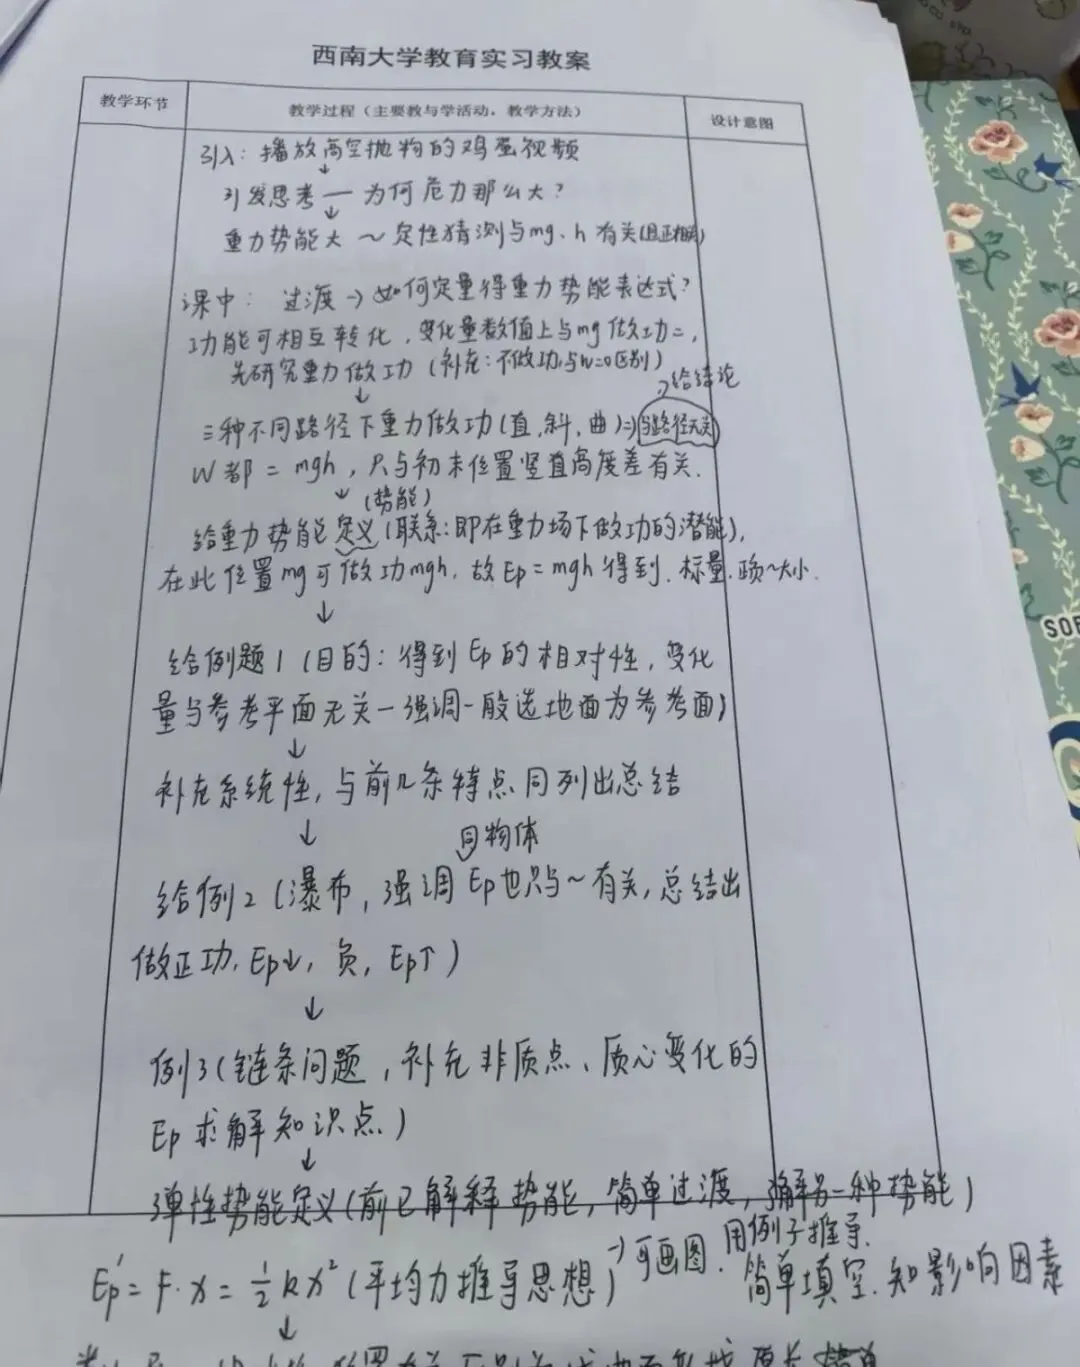 西南大学教育实习教案
教学环节
教学过程（主要教与学活动，教学方法）
设计意图
引入：播放高空抛物的鸡蛋视频
↓
引发思考 — 为何危力那么大？
↓
重力势能大 ~ 定性猜测与mg、h 有关(且正相关)
课中： 过渡 → 如何定量得重力势能表达式？
功能可相互转化，变化量数值上与mg做功=，
先研究重力做功（补充：不做功与W=0区别）
↓
→给结论
三种不同路径下重力做功(直,斜,曲)⇒与路径无关
W都 = mgh，只与初末位置竖直高度差有关.
↓ (势能)
给重力势能定义(联系:即在重力场下做功的潜能),
在此位置mg可做功mgh. 故Ep=mgh得到. 标量. 正负~大小.
↓
给例题1（目的：得到Ep的相对性，变化
量与参考平面无关 — 强调一般选地面为参考面）
↓
补充系统性，与前几条特点同列出总结
↓
同物体
给例2（瀑布，强调Ep也只与~有关，总结出
做正功，Ep↓，负，Ep↑）
↓
例3（链条问题，补充非质点、质心变化的
Ep求解知识点）
↓
弹性势能定义(前已解释势能,简单过渡,讲解另一种势能)
Ep'=F·x=½kx²(平均力推导思想)
→可画图. 用例子推导.
简单填空. 知影响因素
↓
SOF